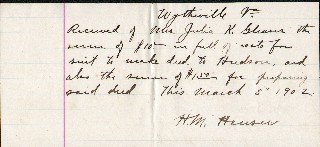 Wytheville Va.
Received of Mrs Julia K. Gleaves the
sum of $10 00 in full of costs for
suit to make deed to Hudson, and
also the sum of $1.50 for preparing
said deed. This March 5th 1902.
H.M. Heuser